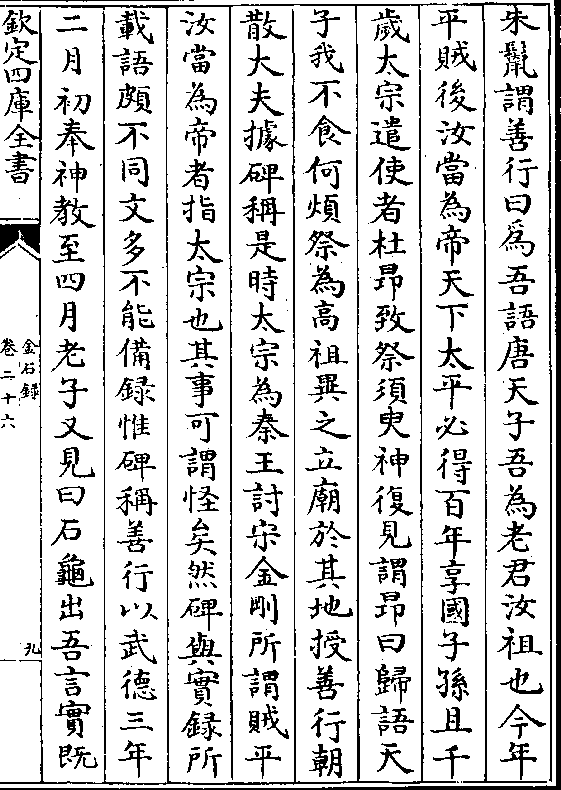 朱鬛謂善行曰為吾語唐天子吾為老君汝祖也今年
平賊後汝當為帝天下太平必得百年享國子孫且千
歲太宗遣使者杜昂致祭須臾神復見謂昂曰歸語天
子我不食何煩祭為高祖異之立廟於其地授善行朝
散大夫據碑稱是時太宗為秦王討宋金剛所謂賊平
汝當為帝者指太宗也其事可謂怪矣然碑與實録所
載語頗不同文多不能備録惟碑稱善行以武德三年
二月初奉神教至四月老子又見曰石龜出吾言實既
欽定四庫全書
金石録
卷二十六
九